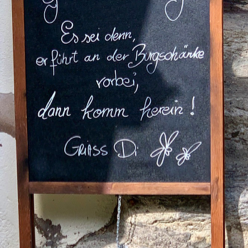 Es sei denn,
er führt an der Burgschänke
vorbei,
dann komm herein!
Griass Di